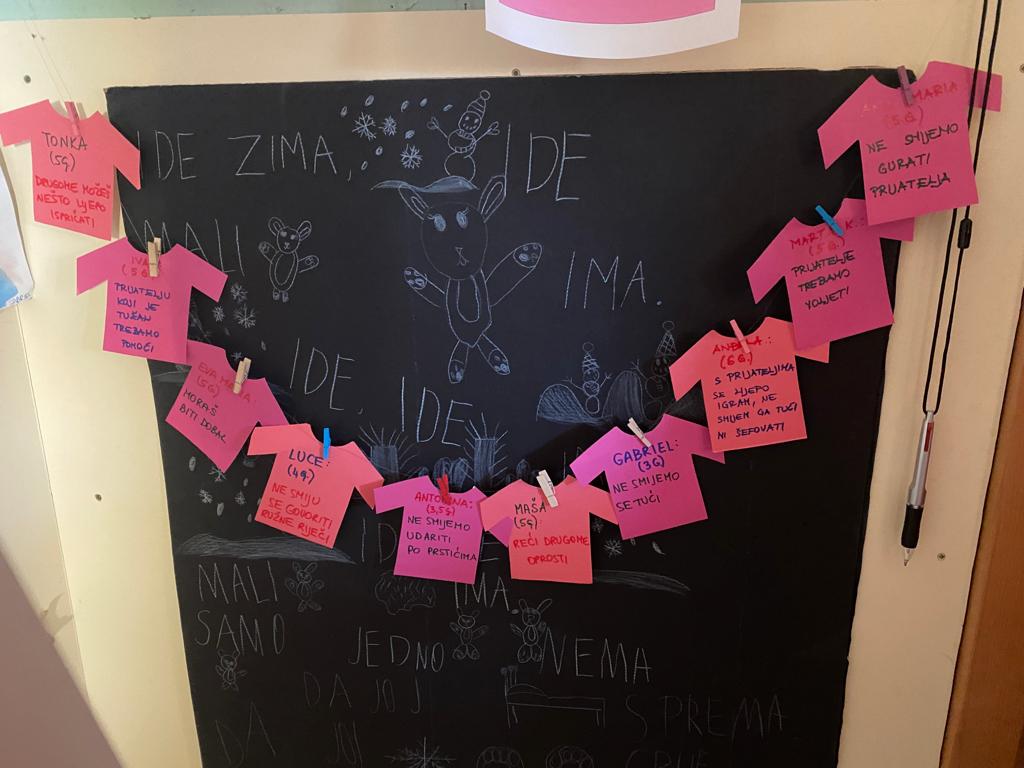 TONKA
(5G)
DRUGOME MOŽEŠ
NEŠTO LJEPO
ISPRIČATI
IVA
(5G)
PRIJATELJU
KOJI JE
TUŽAN
TREBAMO
POMOĆI
EVA
(5G)
MORAŠ
BITI DOBAR
LUCE:
(4G)
NE SMIJU
SE GOVORITI
RUŽNE RIJEČI
(3,5G)
NE SMIJEMO
UDARITI
PO PRSTIĆIMA
MAŠA
(5G):
REĆI DRUGOME
OPROSTI
GABRIEL:
(3G)
NE SMIJEMO
SE TUĆI
(6G.)
S PRIJATELJIMA
SE LIJEPO
IGRAM, NE
SMIJEM GA TUĆI
NI ŠEFOVATI
K.:
(5G.)
PRIJATELJE
TREBAMO
VOLJETI
MARIA
(5.G.)
NE SMIJEMO
GURATI
PRIJATELJA
IDE ZIMA, IDE
MALI IMA.
IDE, IDE
MALI IMA
SAMO JEDNO NEMA
DA JOJ
DA JOJ SPREMA